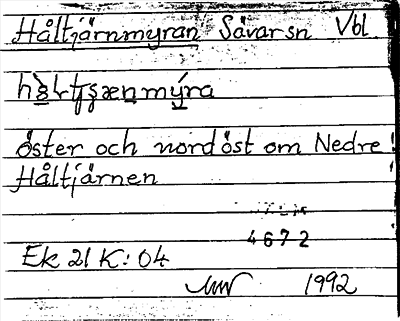 Håltjärnmyran Sävar sn Vbl
öster och nordöst om Nedre
Håltjärnen
4672
Ek 21 K: 04
1992